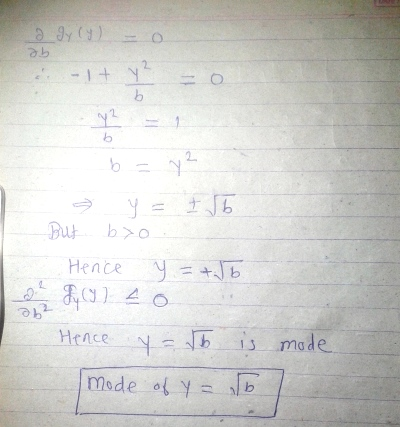 ∂/∂b g_Y(y) = 0
∴ -1 + y²/b = 0
y²/b = 1
b = y²
⇒ y = ±√b
But b > 0
Hence y = +√b
∂²/∂b² g_Y(y) ≤ 0
Hence y = √b is mode
Mode of Y = √b